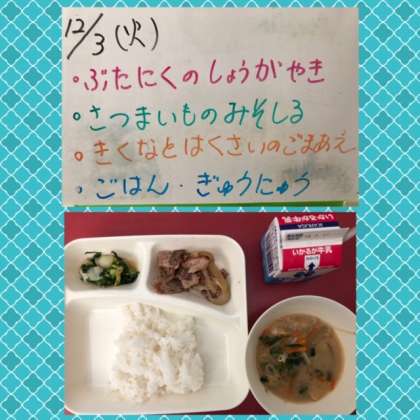 12/3(火)
・ぶたにくのしょうがやき
・さつまいものみそしる
・きくなとはくさいのごまあえ
・ごはん・ぎゅうにゅう
いかるが牛乳
IKARUGA
いかるが牛乳